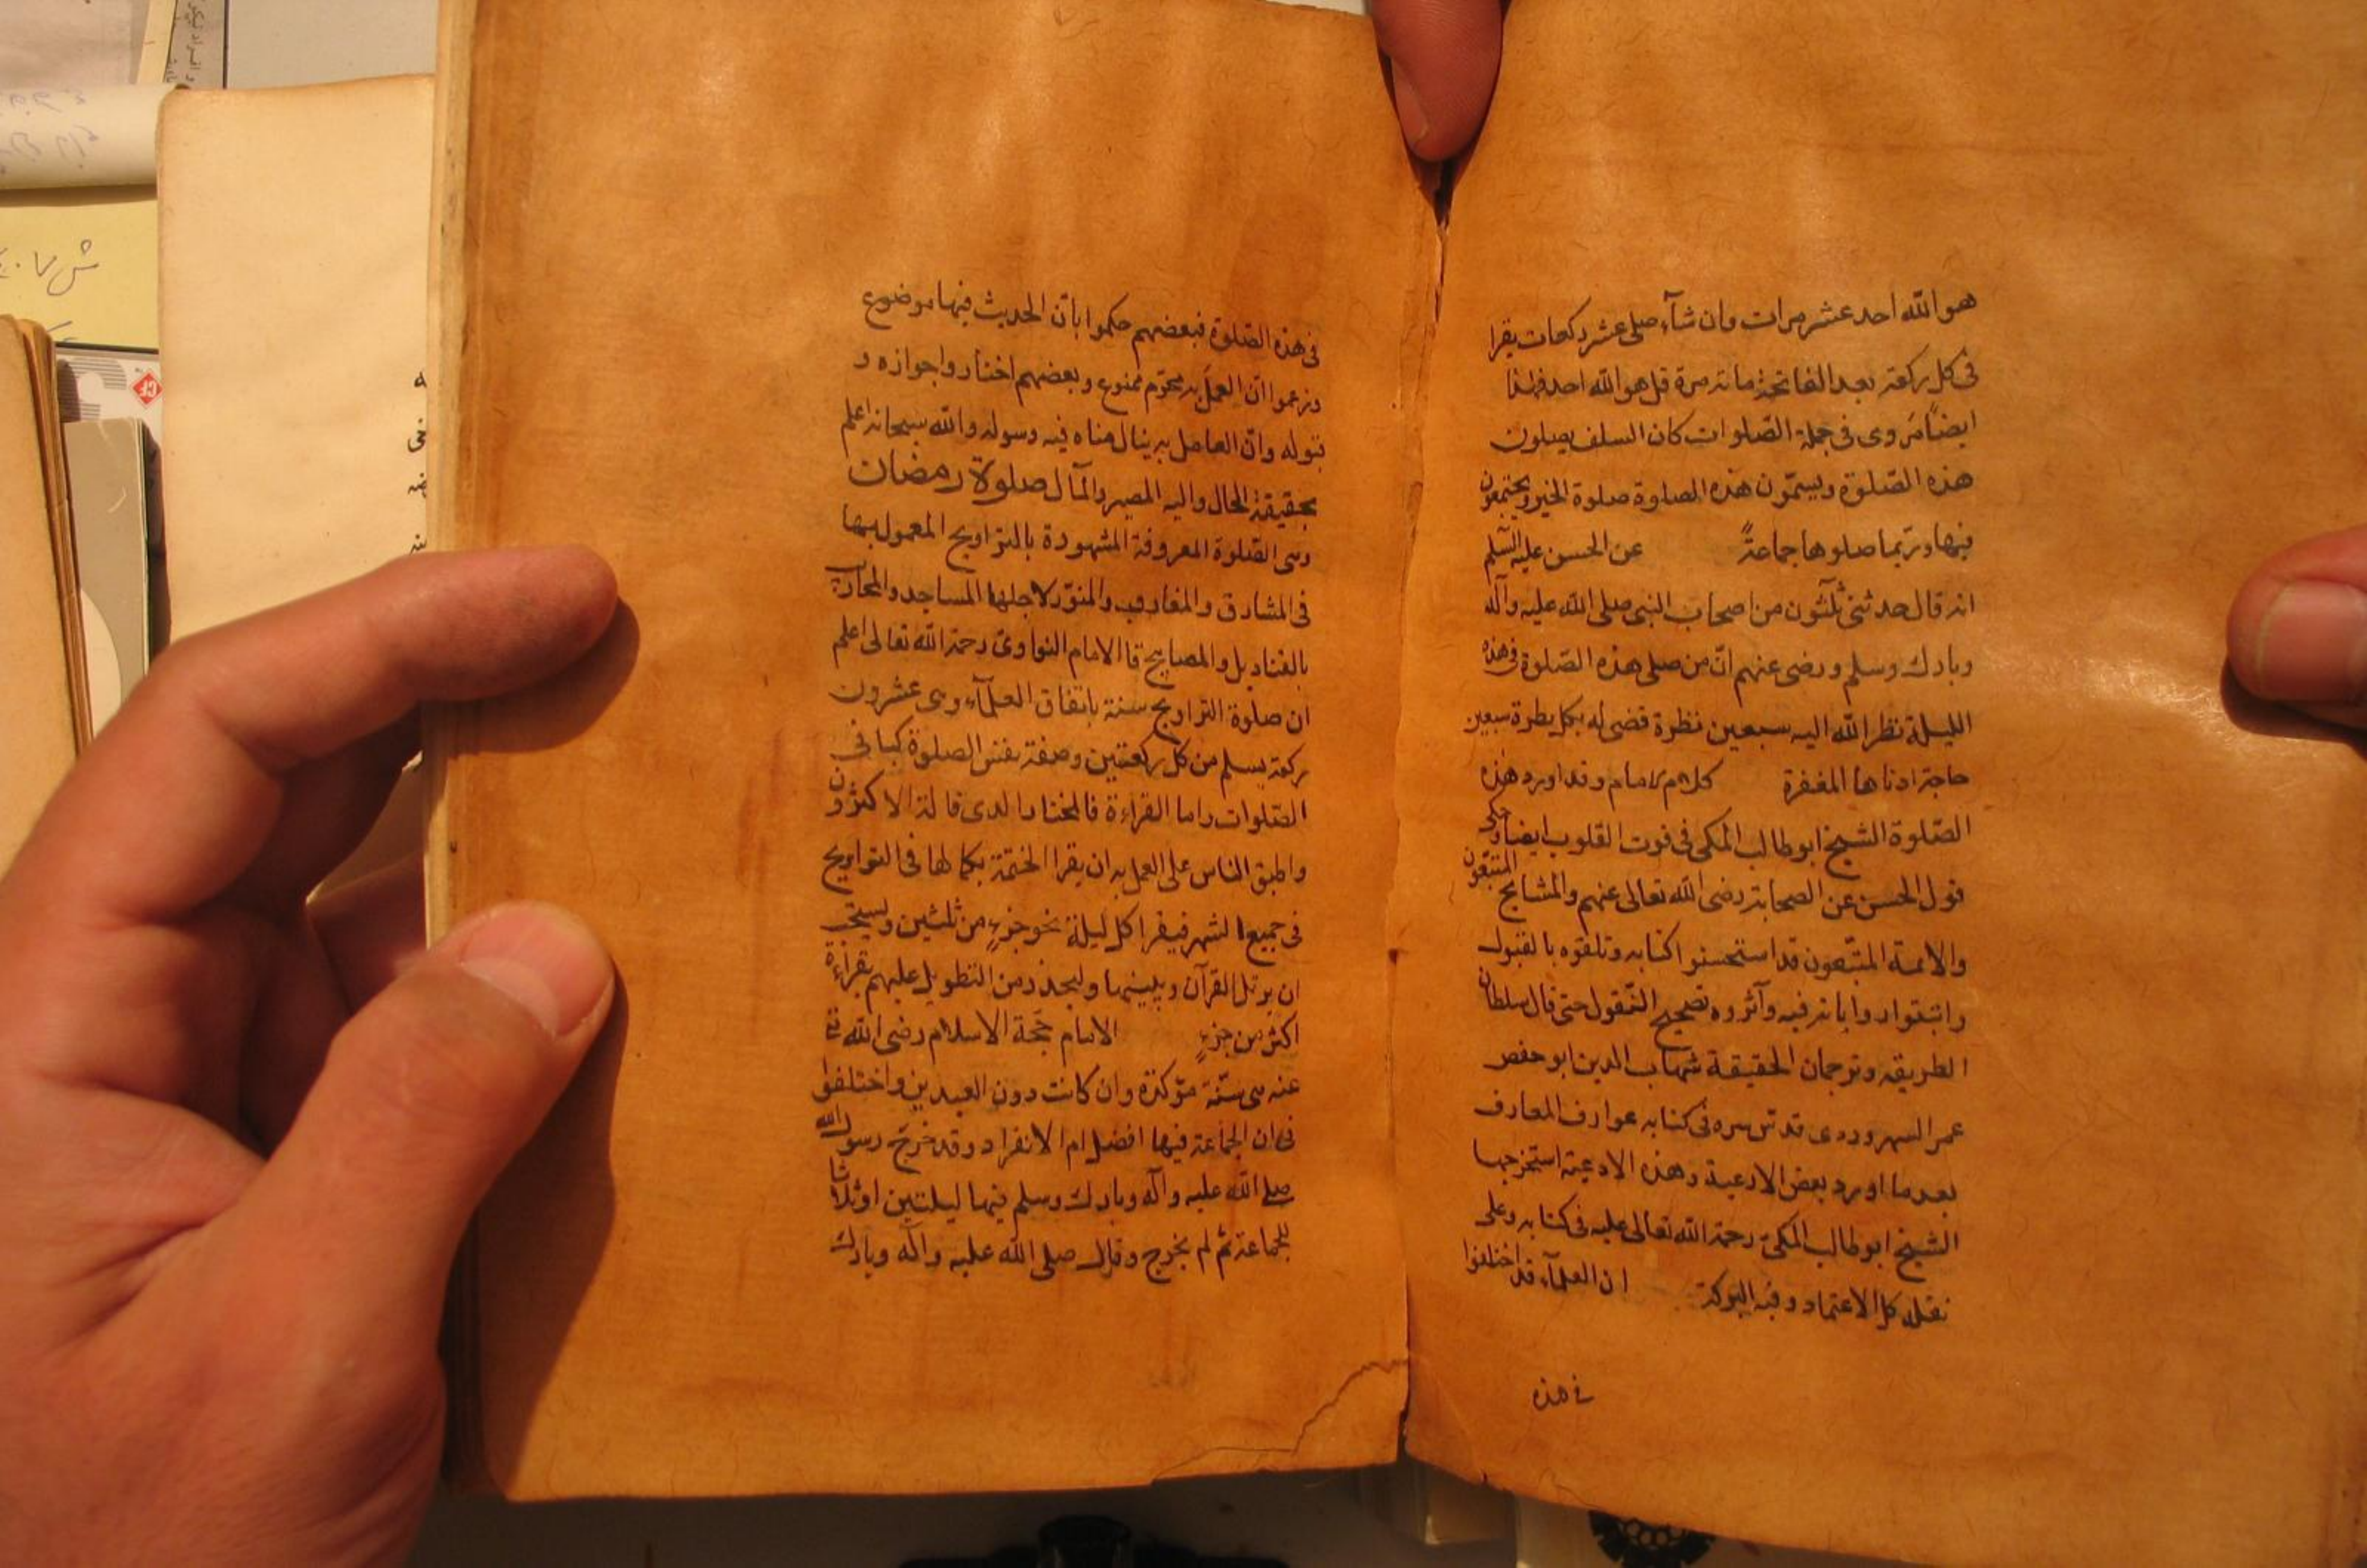 هو الله احد عشر مرات وان شآء صلى عشر ركعات يقرا
فى كل ركعة بعد الفاتحة مائة مرة قل هو الله احد فهذا
ايضًا مروى فى جملة الصّلوات كان السلف يصلون
هذه الصّلوة ويسمّون هذه الصلوة صلوة الخير ويجتمعون
فيها وربّما صلوها جماعةً عن الحسن عليه السّلم
انه قال حدثنى ثلثون من اصحاب النبى صلى الله عليه وآله
وبارك وسلم ورضى عنهم انّ من صلى هذه الصّلوة فى هذه
الليلة نظر الله اليه سبعين نظرة قضى له بكل نظرة سبعين
حاجة ادناها المغفرة كلام الامام وقد اورد هذه
الصّلوة الشيخ ابو طالب المكى فى قوت القلوب ايضا وحكى
قول الحسن عن الصحابة رضى الله تعالى عنهم والمشايخ المتبعون
والائمة المتّبعون قد استحسنوا كتابه وتلقوه بالقبول
واتبعوا روايات فيه وآثروه تصحيح النّقول حتى قال سلطان
الطريقة وترجمان الحقيقة شهاب الدين ابو حفص
عمر السهروردى قدس سره فى كتابه عوارف المعارف
بعد ما اورد بعض الادعية وهذه الادعية استخرجها
الشيخ ابو طالب المكى رحمة الله تعالى عليه فى كتابه وعلى
نقله كل الاعتماد وفيه البركة ان العلمآء قد اختلفوا
فى هذه
فى هذه الصّلوة فبعضهم حكموا بانّ الحديث فيها موضوع
وزعموا انّ العمل به محرّم ممنوع وبعضهم اختاروا جوازه و
قبوله وانّ العامل به ينال مناه فيه وسوله والله سبحانه اعلم
بحقيقة الحال واليه المصير والمآل صلوة رمضان
وهى الصّلوة المعروفة المشهودة بالتراويح المعمول بها
فى المشارق والمغارب والمنوّر لاجلها المساجد والمحاريب
بالقناديل والمصابيح قا الامام النواوى رحمة الله تعالى اعلم
ان صلوة التراويح سنة باتفاق العلمآء وهى عشرون
ركعة يسلم من كل ركعتين وصفة نفس الصلوة كباقى
الصّلوات واما القراءة فالمختار الذى قاله الاكثرون
واطبق الناس على العمل به ان يقرا الختمة بكمالها فى التراويح
فى جميع الشهر فيقرا كل ليلة نحو جزءٍ من ثلثين ويستحب
ان يرتل القرآن ويبينها وليحذر من التطويل عليهم بقراءة
اكثر من جزءٍ الامام حجة الاسلام رضى الله تع
عنه هى سنّة مؤكدة وان كانت دون العيدين واختلفوا
فى ان الجماعة فيها افضل ام الانفراد وقد خرج رسول الله
صلى الله عليه وآله وبارك وسلم فيها ليلتين او ثلاثا
للجماعة ثم لم يخرج وقال صلى الله عليه وآله وبارك